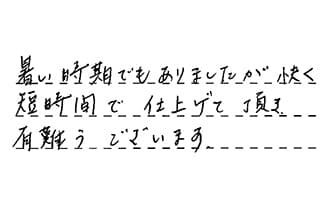 暑い時期でもありましたが快く
短時間で仕上げて頂き
有難うございます。